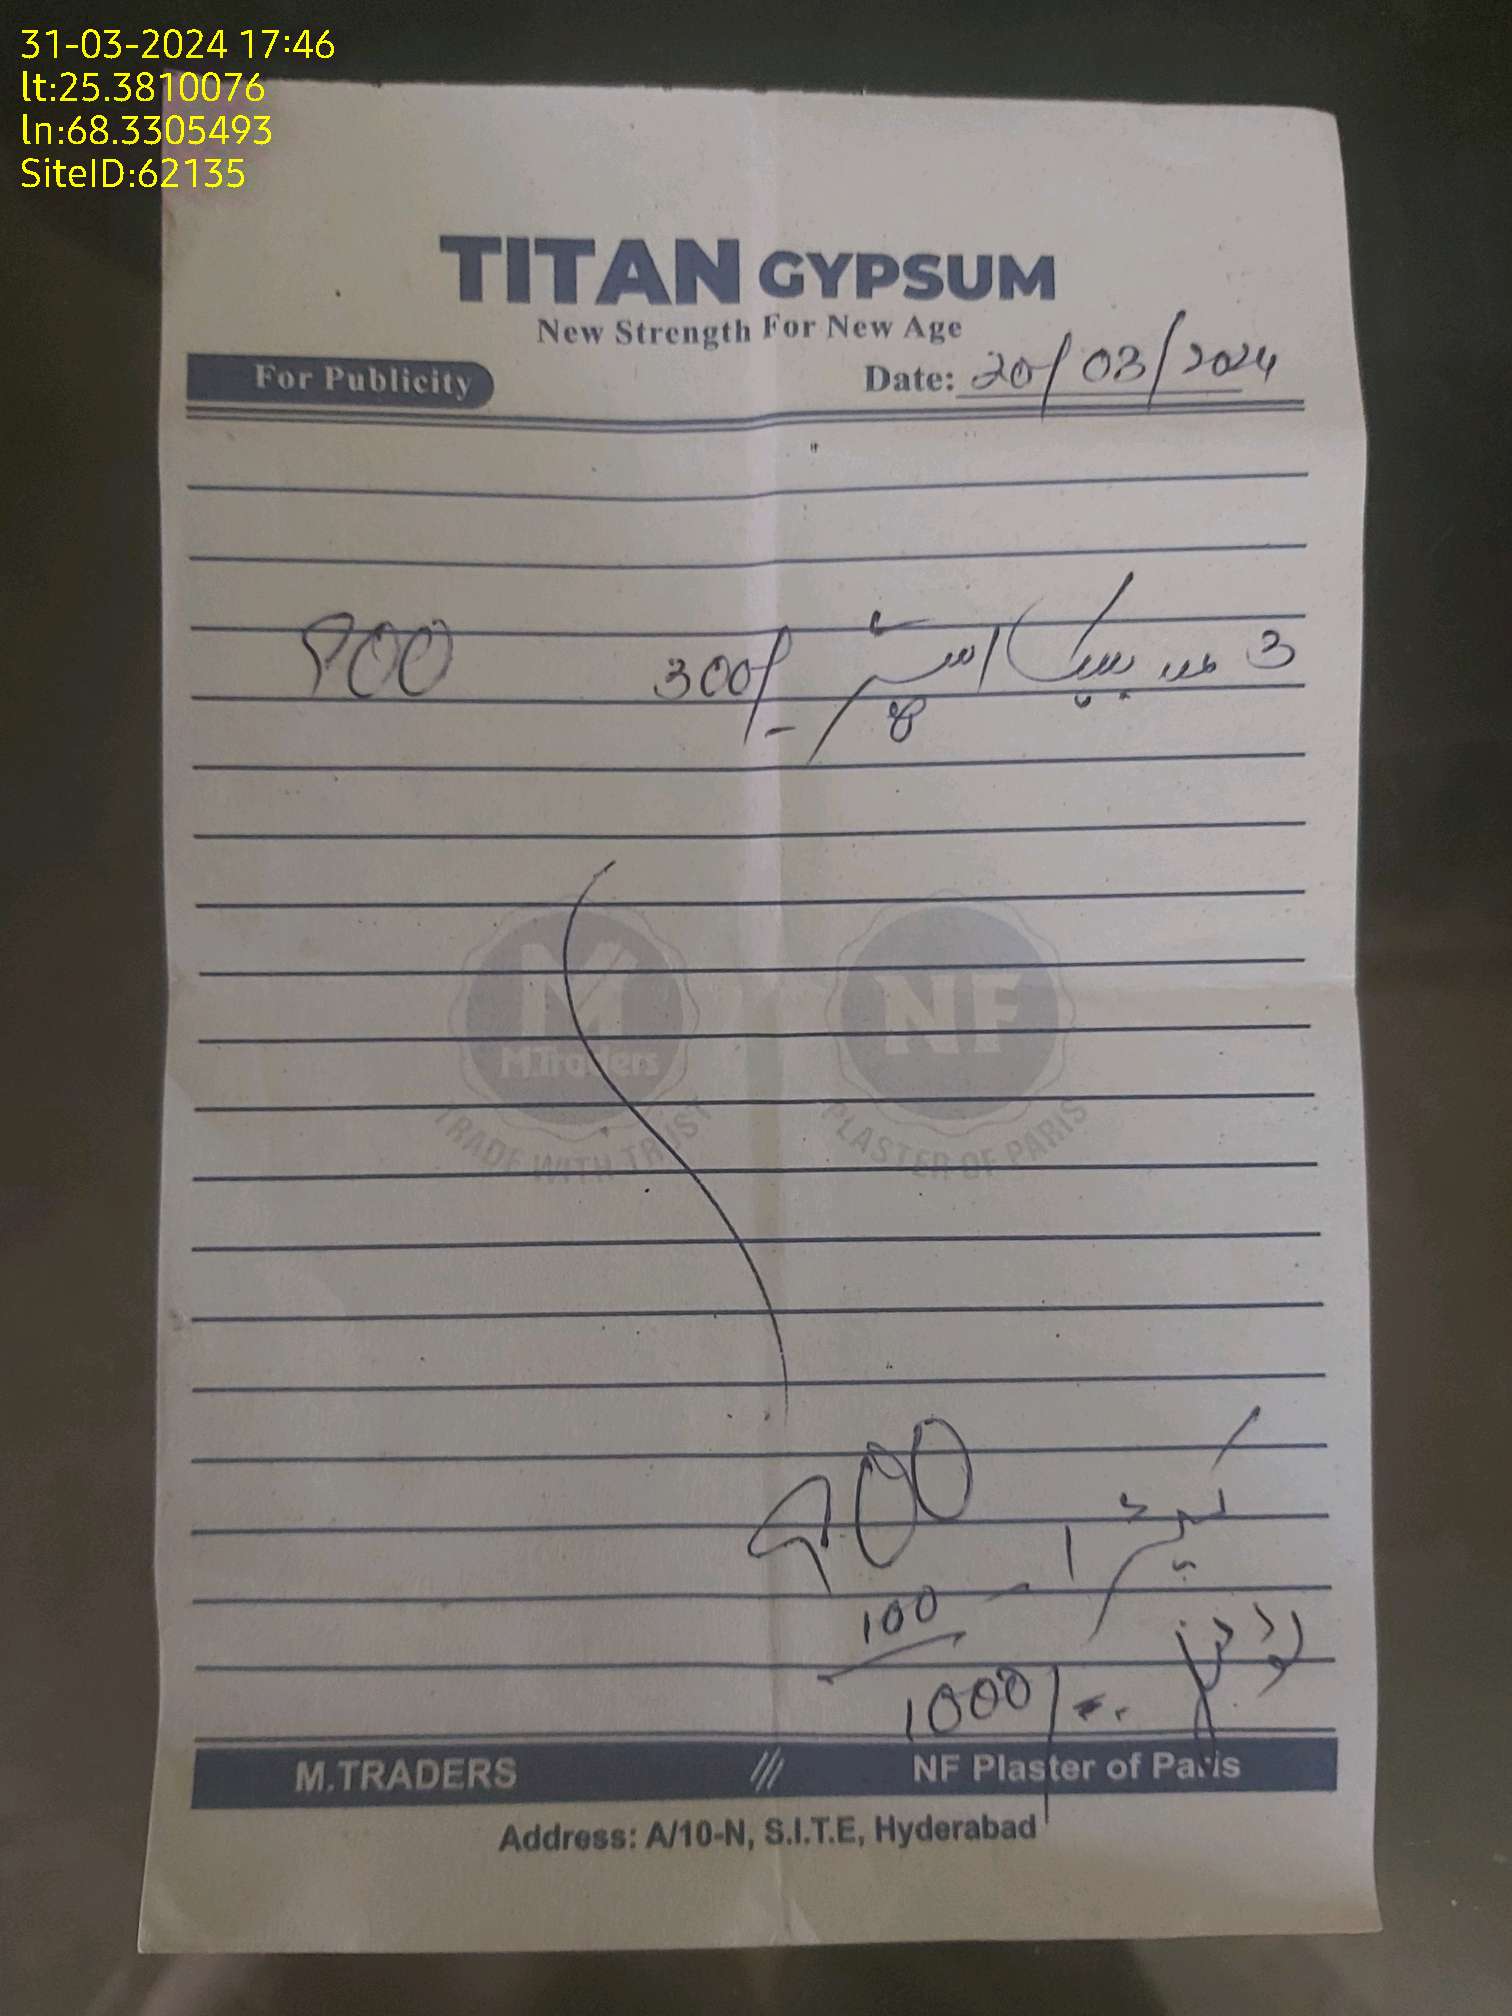 31-03-2024 17:46
lt:25.3810076
ln:68.3305493
SiteID:62135
TITAN GYPSUM
New Strength For New Age
For Publicity
Date: 20/03/2024
3 عدد بیگ 300/- 900
M.Traders
TRADE WITH TRUST
NF
PLASTER OF PARIS
900
100
1000/-
M.TRADERS /// NF Plaster of Paris
Address: A/10-N, S.I.T.E, Hyderabad